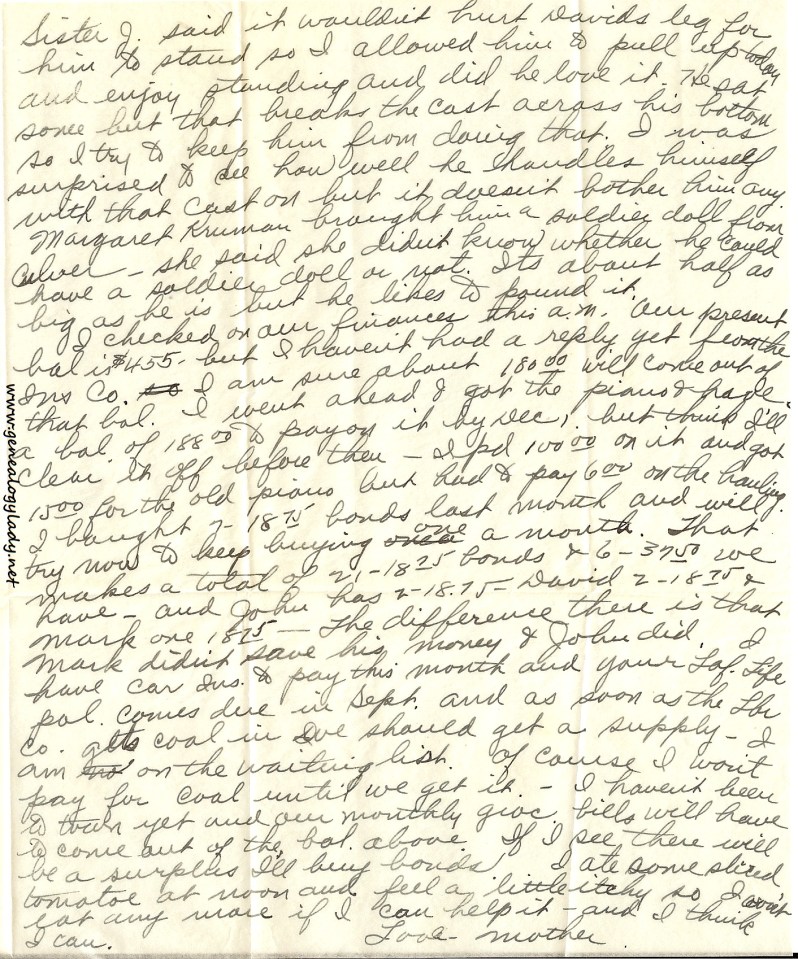 Sister J. said it wouldn't hurt Davids leg for
him to stand so I allowed him to pull up today
and enjoy standing and did he love it. He sat
some but that breaks the cast across his bottom
so I try to keep him from doing that. I was
surprised to see how well he handles himself
with that cast on but it doesn't bother him any
Margaret Kruman brought him a soldier doll from
Culver - she said she didn't know whether he could
have a soldier doll or not. Its about half as
big as he is but he likes to pound it.
I checked on our finances this a.m. Our present
bal is $455- but I haven't had a reply yet from the
Ins Co. I am sure about 180 00 will come out of
that bal. I went ahead & got the piano &
a bal. of 188 00 to pay on it by Dec, but think I'll
clear it off before then - I pd 100 00 on it and got
15 00 for the old piano but had to pay 6 00 on the hauling.
I bought 7- 18 75 bonds last month and will
try now to keep buying one a month. That
makes a total of 21-18 75 bonds & 6-37 50 we
have - and John has 2-18.75- David 2-18 75 &
Mark one 18 75 - The difference there is that
Mark didn't save his money & John did. I
have car Ins. to pay this month and your Laf. Life
pol. comes due in Sept. and as soon as the Lbr
Co. gets coal in we should get a supply - I
am on the waiting list. Of course I won't
pay for coal until we get it. - I haven't been
to town yet and our monthly groc. bills will have
to come out of the bal. above. If I see there will
be a surplus I'll buy bonds I ate some sliced
tomatoe at noon and feel a little itchy so I won't
eat any more if I can help it - and I think
I can. Love - Mother
www.genealogylady.net